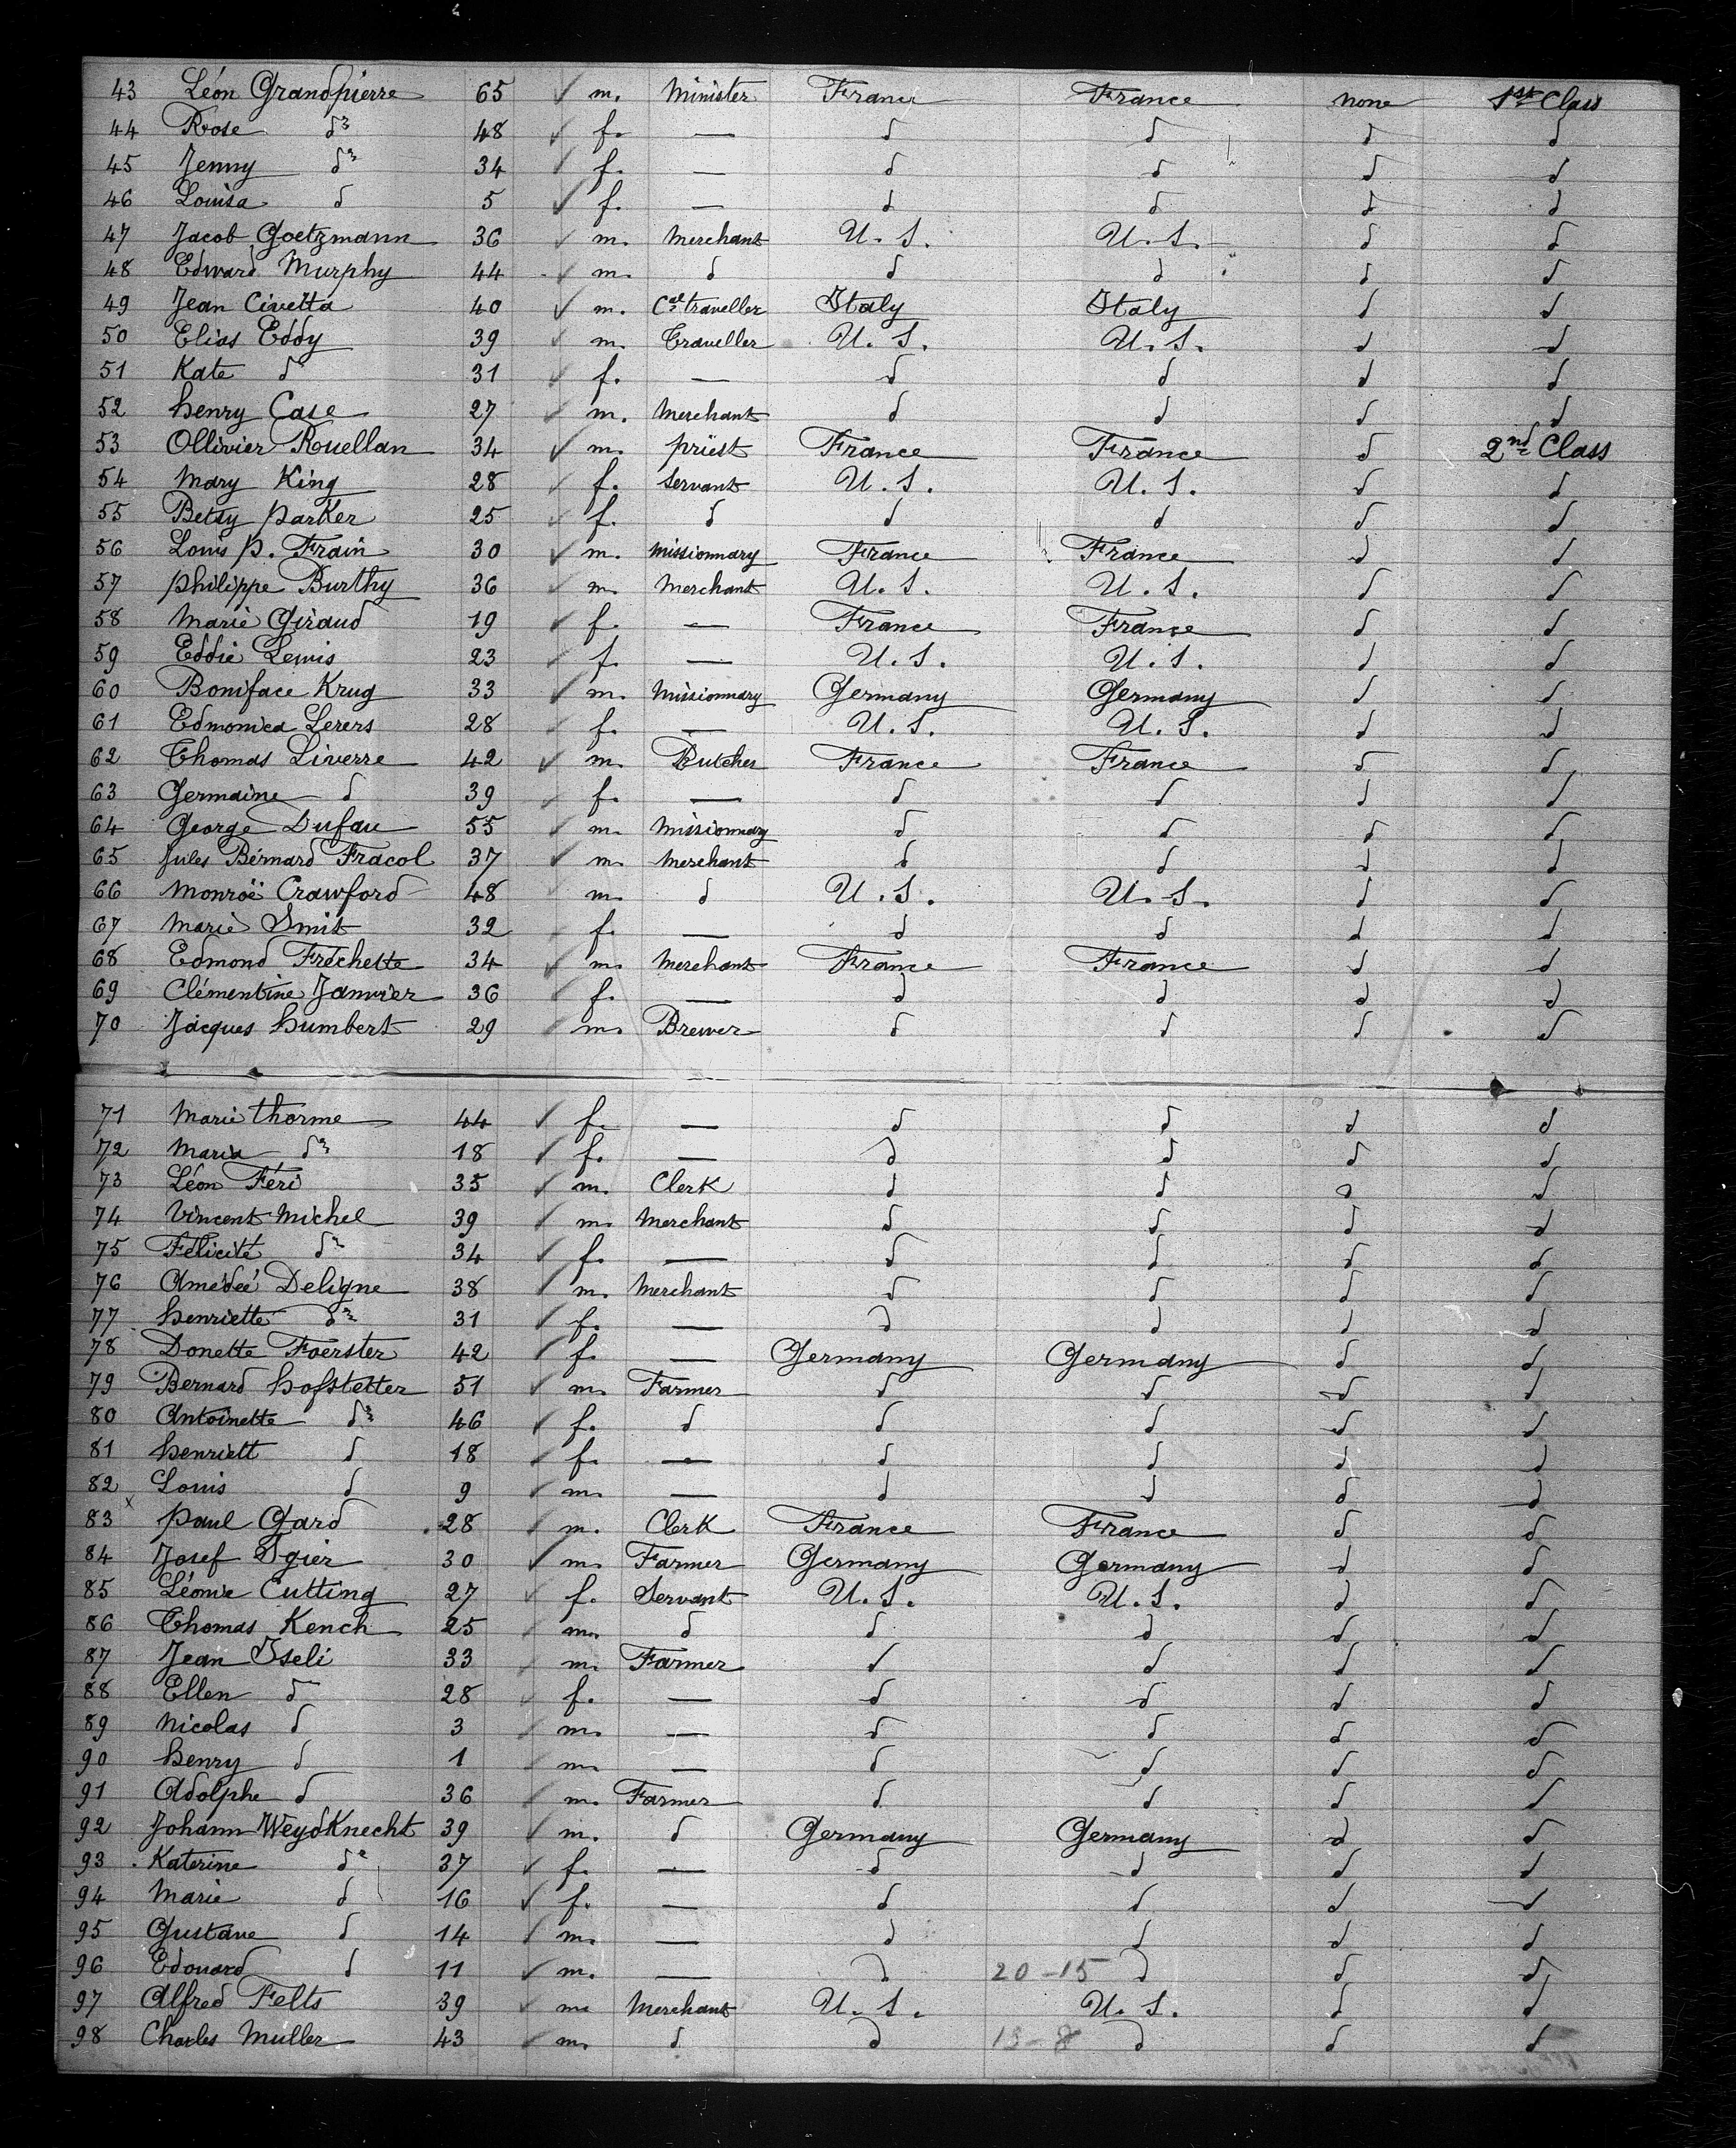 43 Léon Grandpierre 65 ✓ m. Minister France France none 1st Class
44 Rose do 48 ✓ f. — d d d d
45 Jenny do 34 ✓ f. — d d d d
46 Louisa d 5 ✓ f. — d d d d
47 Jacob Goetzmann 36 ✓ m. Merchant U. S. U. S. d d
48 Edward Murphy 44 ✓ m. d d d d d
49 Jean Civetta 40 ✓ m. Cal traveller Italy Italy d d
50 Elias Eddy 39 ✓ m. Traveller U. S. U. S. d d
51 Kate d 31 ✓ f. — d d d d
52 henry Case 27 ✓ m. Merchant d d d d
53 Ollivier Ruellan 34 ✓ m. priest France France d 2nd Class
54 Mary King 28 ✓ f. Servant U. S. U. S. d d
55 Betsy parker 25 ✓ f. d d d d d
56 Louis p. Frain 30 ✓ m. Missionnary France France d d
57 philippe Burthy 36 ✓ m. Merchant U. S. U. S. d d
58 Marie Giraud 19 ✓ f. — France France d d
59 Eddie Lewis 23 ✓ f. — U. S. U. S. d d
60 Boniface Krug 33 ✓ m. Missionnary Germany Germany d d
61 Edmonica Lerers 28 ✓ f. — U. S. U. S. d d
62 Thomas Liverre 42 ✓ m. Butcher France France d d
63 Germaine d 39 ✓ f. — d d d d
64 George Dufau 55 ✓ m. Missionnary d d d d
65 Jules Bérnard Fracol 37 ✓ m. Merchant d d d d
66 Monroë Crawford 48 ✓ m. d U. S. U. S. d d
67 Marie Smit 32 ✓ f. — d d d d
68 Edmond Fréchette 34 ✓ m. Merchant France France d d
69 Clémentine Janvier 36 ✓ f. — d d d d
70 Jacques humbert 29 ✓ m. Brewer d d d d
71 Marie thorme 44 ✓ f. — d d d d
72 Maria do 18 ✓ f. — d d d d
73 Léon Féri 35 ✓ m. Clerk d d d d
74 Vincent Michel 39 ✓ m. Merchant d d d d
75 Félicité do 34 ✓ f. — d d d d
76 Amédeé Deligne 38 ✓ m. Merchant d d d d
77 henriette do 31 ✓ f. — d d d d
78 Donette Foerster 42 ✓ f. — Germany Germany d d
79 Bernard hofstetter 51 ✓ m. Farmer d d d d
80 Antoinette do 46 ✓ f. d d d d d
81 henriett d 18 ✓ f. — d d d d
82 Louis d 9 ✓ m. — d d d d
83 x paul Gard 28 ✓ m. Clerk France France d d
84 Josef Sgier 30 ✓ m. Farmer Germany Germany d d
85 Léonie Cutting 27 ✓ f. Servant U. S. U. S. d d
86 Thomas Kench 25 ✓ m. d d d d d
87 Jean Iseli 33 ✓ m. Farmer d d d d
88 Ellen d 28 ✓ f. — d d d d
89 Nicolas d 3 ✓ m. — d d d d
90 henry d 1 ✓ m. — d d d d
91 Adolphe d 36 ✓ m. Farmer d d d d
92 Johann Weydknecht 39 ✓ m. d Germany Germany d d
93 Katerine do 37 ✓ f. — d d d d
94 Marie d 16 ✓ f. — d d d d
95 Gustave d 14 ✓ m. — d d d d
96 Edouard d 11 ✓ m. — d 20-15 d d d
97 Alfred Felts 39 ✓ m. Merchant U. S. U. S. d d
98 Charles Muller 43 ✓ m. d d 13-8 d d d